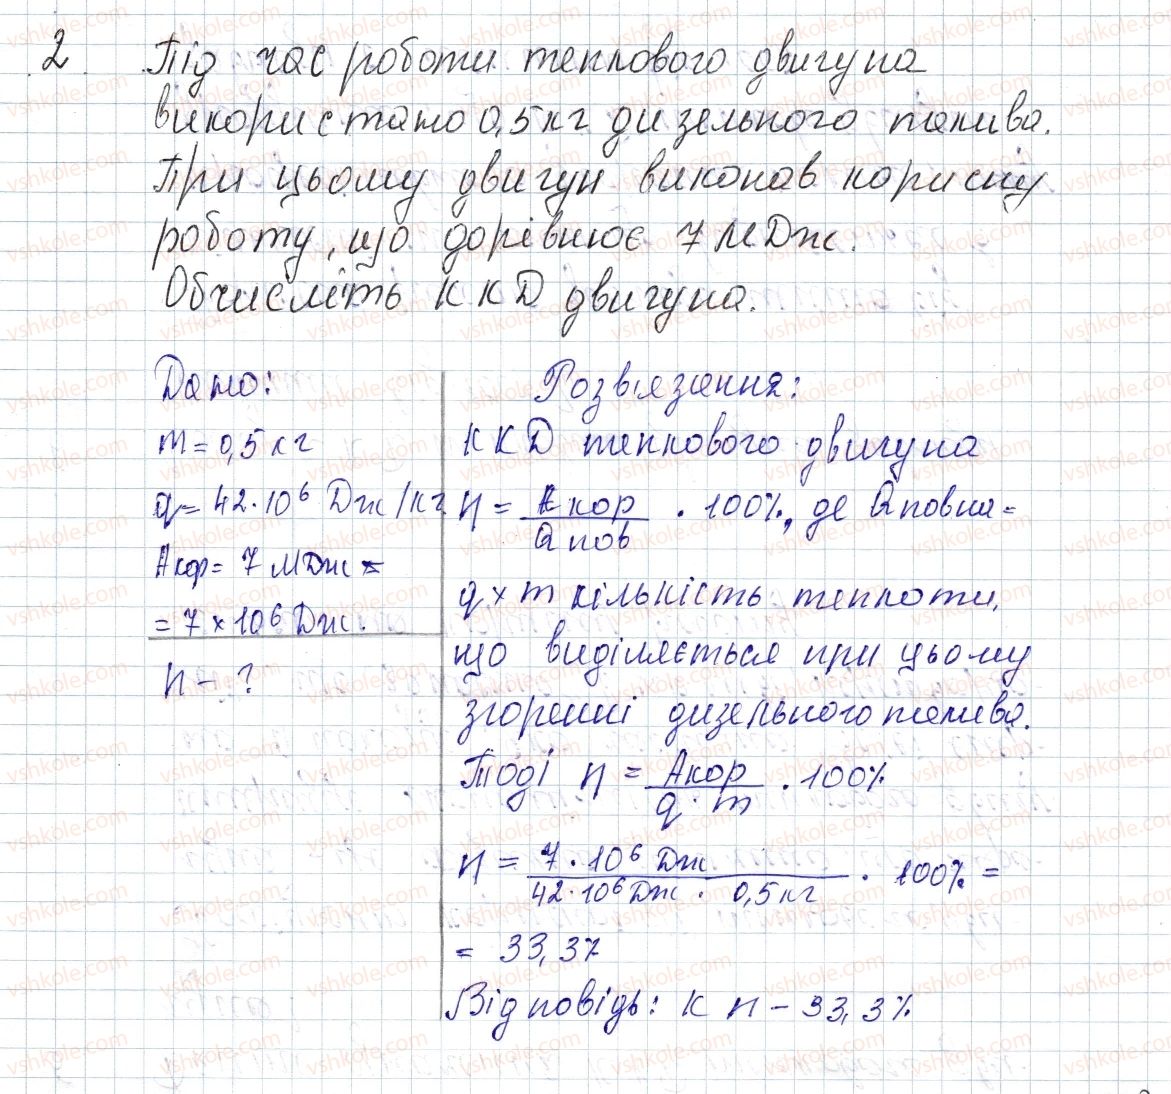 2 Під час роботи теплового двигуна
використано 0,5 кг дизельного палива.
При цьому двигун виконав корисну
роботу, що дорівнює 7 МДж.
Обчисліть ККД двигуна.
Дано:
m = 0,5 кг
q = 42·10⁶ Дж/кг
Акор = 7 МДж =
= 7 × 10⁶ Дж.
η - ?
Розв'язання:
ККД теплового двигуна
η = Акор / Qпов · 100%, де Qповна =
q × m кількість теплоти,
що виділяється при цьому
згоренні дизельного палива.
Тоді η = Акор / q · m · 100%
η = 7 · 10⁶ Дж / 42·10⁶ Дж · 0,5 кг · 100% =
= 33,3%
Відповідь: к η - 33,3%
vshkole.com